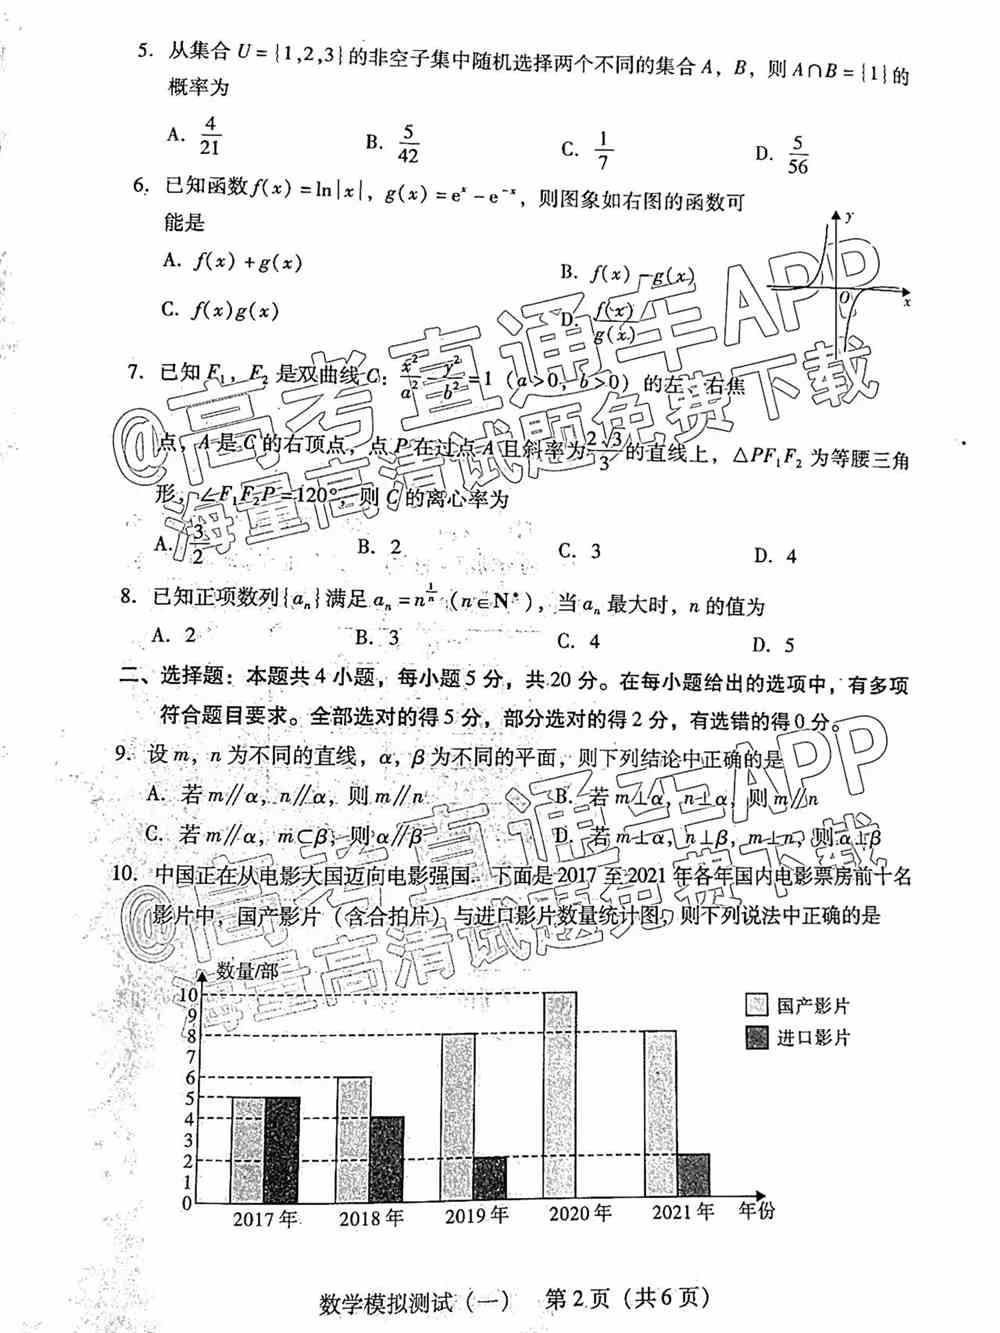 5. 从集合 U={1,2,3}的非空子集中随机选择两个不同的集合 A，B，则 A∩B={1}的
概率为
A. 4/21 B. 5/42 C. 1/7 D. 5/56
6. 已知函数f(x)=ln|x|，g(x)=eˣ-e⁻ˣ，则图象如右图的函数可
能是
y
A. f(x)+g(x) B. f(x)-g(x)
O x
C. f(x)g(x) D. f(x)/g(x)
7. 已知 F₁，F₂ 是双曲线 C：x²/a²-y²/b²=1（a>0，b>0）的左、右焦
点，A是 C 的右顶点，点 P 在过点 A 且斜率为 2√3/3 的直线上，△PF₁F₂ 为等腰三角
形，∠F₁F₂P=120°，则 C 的离心率为
A. 3/2 B. 2 C. 3 D. 4
8. 已知正项数列{aₙ}满足 aₙ=n^(1/n)（n∈N*），当 aₙ 最大时，n 的值为
A. 2 B. 3 C. 4 D. 5
二、选择题：本题共4小题，每小题5分，共20分。在每小题给出的选项中，有多项
符合题目要求。全部选对的得5分，部分选对的得2分，有选错的得0分。
9. 设 m，n 为不同的直线，α，β 为不同的平面，则下列结论中正确的是
A. 若 m∥α，n∥α，则 m∥n B. 若 m⊥α，n⊥α，则 m∥n
C. 若 m∥α，m⊂β，则 α∥β D. 若 m⊥α，n⊥β，m⊥n，则 α⊥β
10. 中国正在从电影大国迈向电影强国．下面是2017至2021年各年国内电影票房前十名
影片中，国产影片（含合拍片）与进口影片数量统计图，则下列说法中正确的是
数量/部
国产影片
进口影片
10
9
8
7
6
5
4
3
2
1
0
2017年 2018年 2019年 2020年 2021年 年份
数学模拟测试（一） 第2页（共6页）
@高考直通车APP
海量高清试题免费下载
@高考直通车APP
海量高清试题免费下载